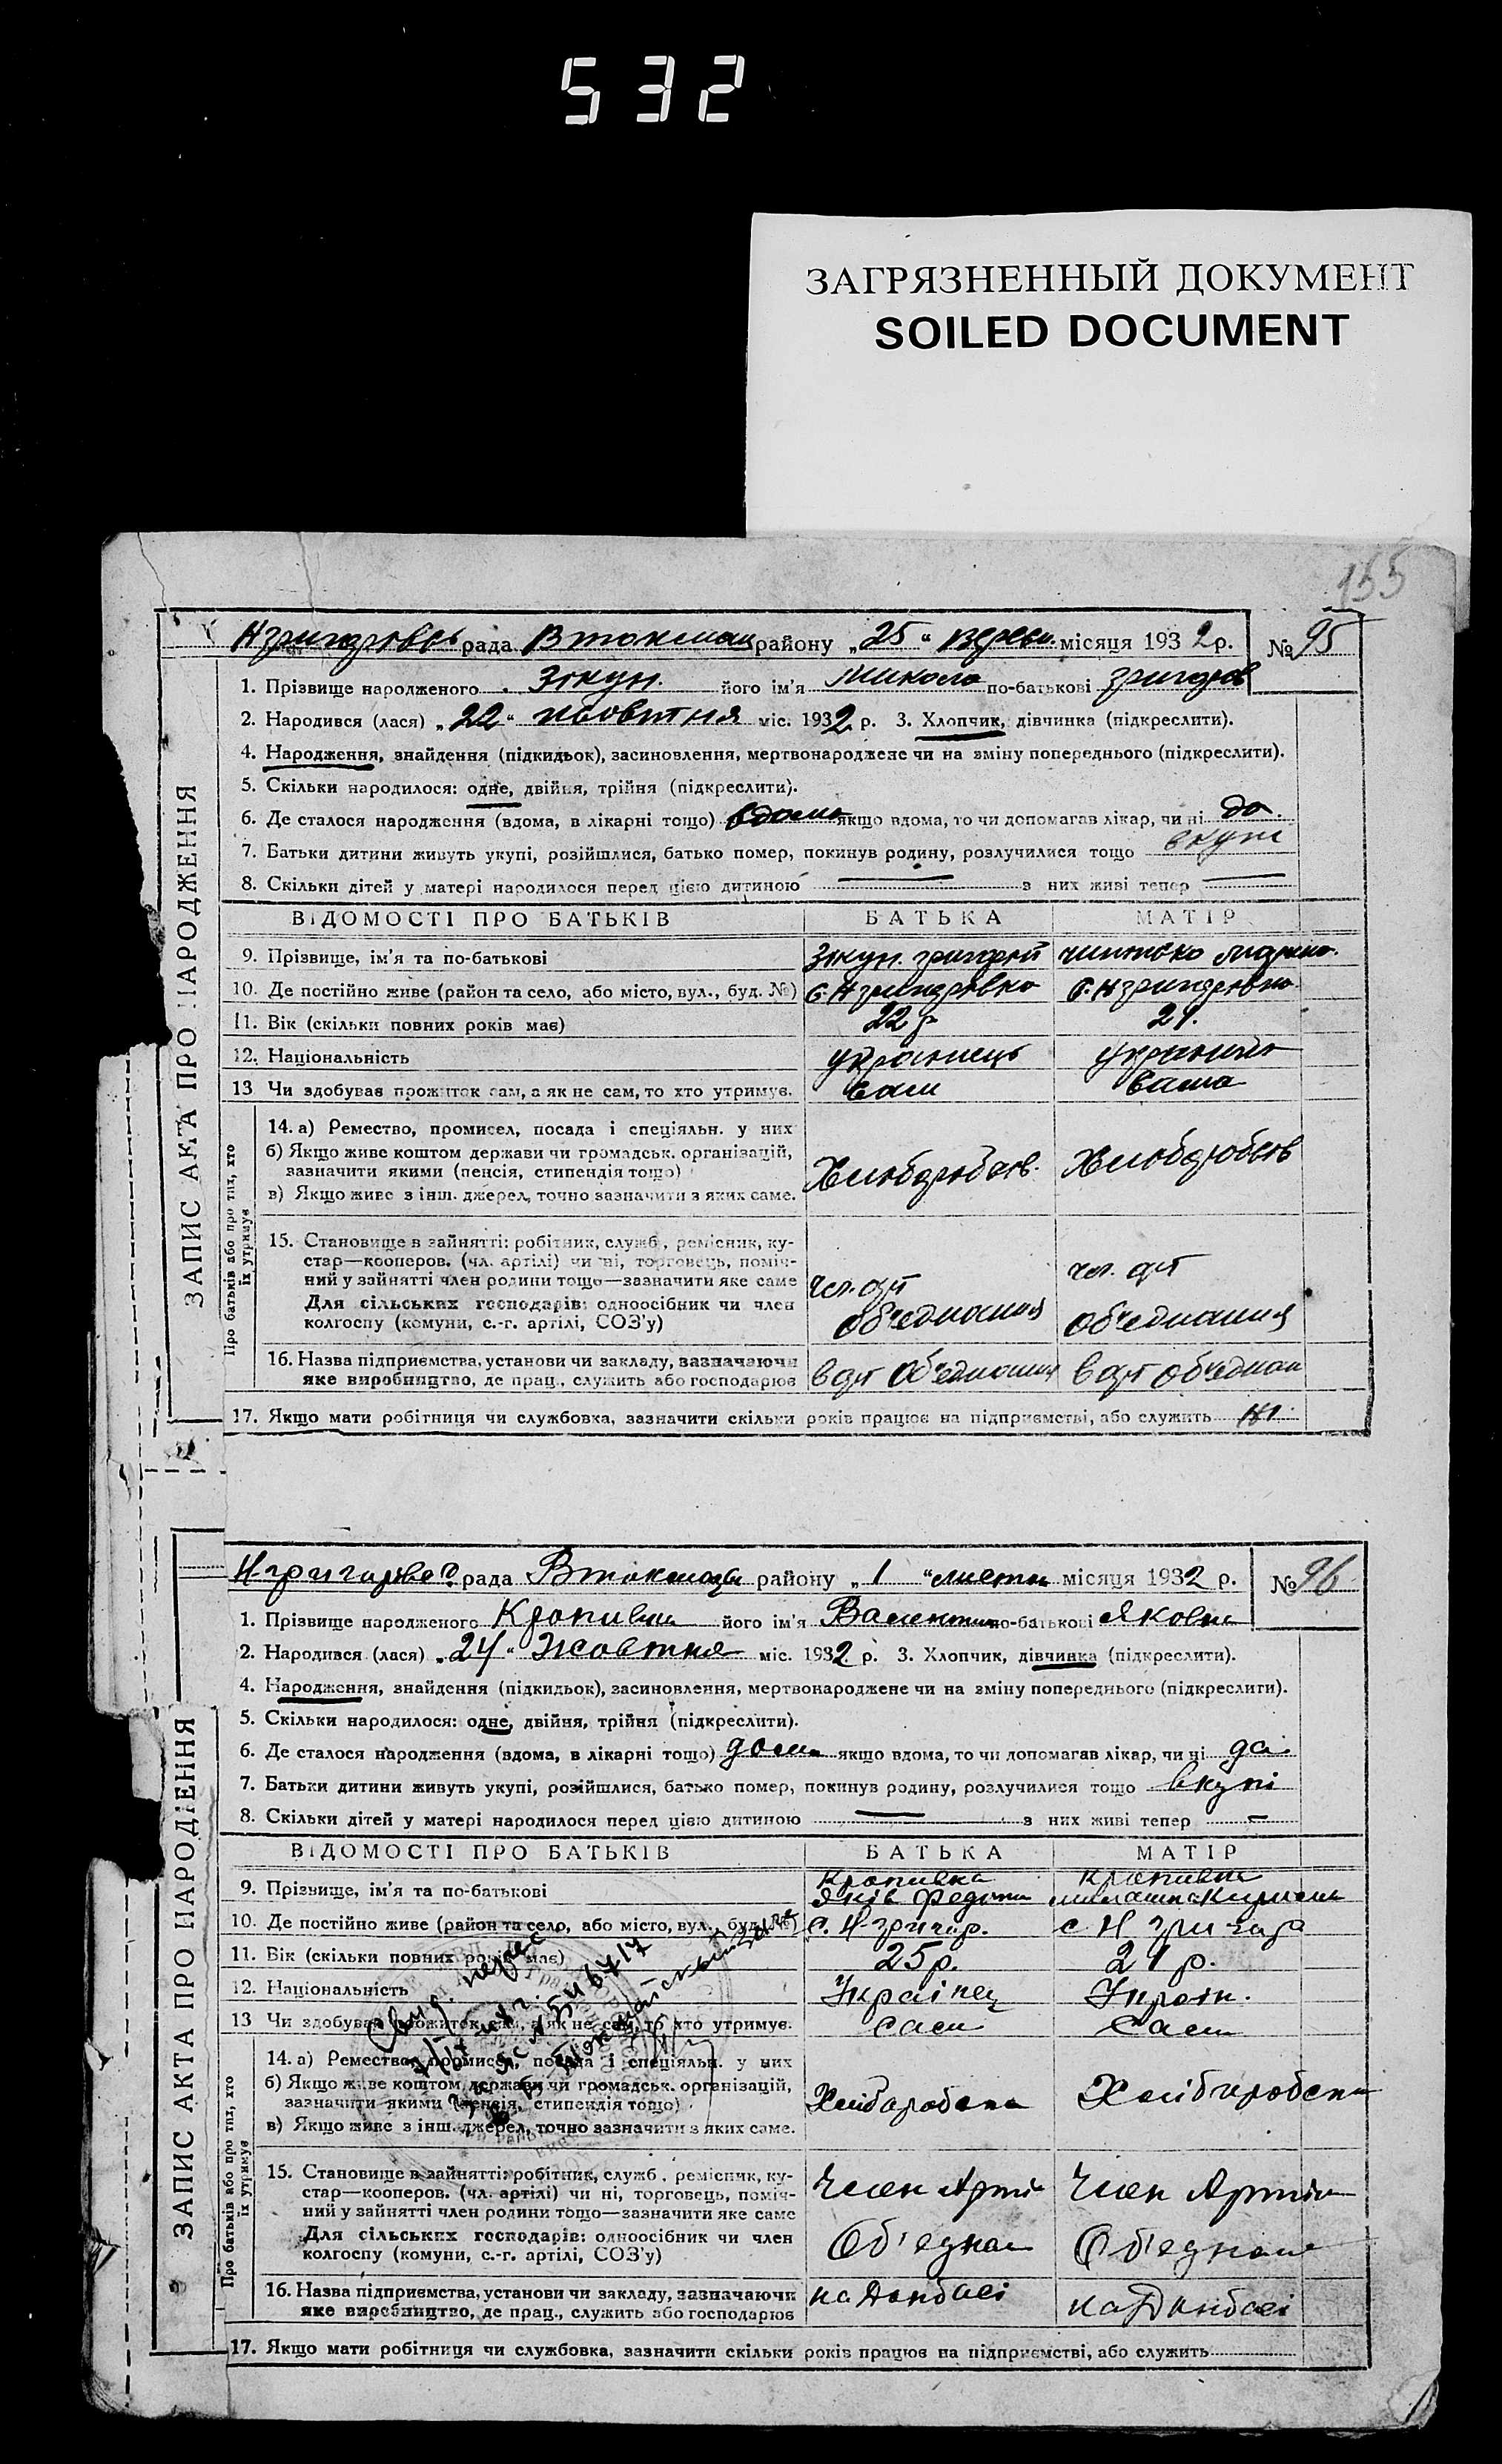 532
ЗАГРЯЗНЕННЫЙ ДОКУМЕНТ
SOILED DOCUMENT
155
рада В токмац району „25“ місяця 1932 р. № 95
1. Прізвище народженого Зікун його ім'я Микола по-батькові Григоров
2. Народився (лася) „22“ жовтня міс. 1932 р. 3. Хлопчик, дівчинка (підкреслити).
4. Народження, знайдення (підкидьок), засиновлення, мертвонароджене чи на зміну попереднього (підкреслити).
5. Скільки народилося: одне, двійня, трійня (підкреслити).
6. Де сталося народження (вдома, в лікарні тощо) вдома якщо вдома, то чи допомагав лікар, чи ні да.
7. Батьки дитини живуть укупі, розійшлися, батько помер, покинув родину, розлучилися тощо вкупі
8. Скільки дітей у матері народилося перед цією дитиною — з них живі тепер —
ВІДОМОСТІ ПРО БАТЬКІВ БАТЬКА МАТІР
9. Прізвище, ім'я та по-батькові Зікун Григорій
10. Де постійно живе (район та село, або місто, вул., буд. №) с. Н григоровка с. Н григоровка
11. Вік (скільки повних років має) 22 р 21.
12. Національність українець
13 Чи здобуває прожиток сам, а як не сам, то хто утримує. сам сама
14. а) Ремество, промисел, посада і спеціяльн. у них
б) Якщо живе коштом держави чи громадськ. організацій,
зазначити якими (пенсія, стипендія тощо)
в) Якщо живе з інш. джерел, точно зазначити з яких саме.
Хлібороб Хлібороб
15. Становище в зайнятті: робітник, служб., ремісник, ку-
стар—кооперов. (чл. артілі) чи ні, торговець, поміч-
ний у зайнятті член родини тощо—зазначити яке саме
Для сільських господарів: одноосібник чи член
колгоспу (комуни, с.-г. артілі, СОЗ'у)
чл. арт чл. арт
об'єднання об'єднання
16. Назва підприємства, установи чи закладу, зазначаючи
яке виробництво, де прац., служить або господарює
в арт об'єднання в арт об'єднан
17. Якщо мати робітниця чи службовка, зазначити скільки років працює на підприємстві, або служить ні
ЗАПИС АКТА ПРО НАРОДЖЕННЯ
Про батьків або про тих, хто
їх утримує
рада В токмац району „1“ листоп місяця 1932 р. № 96
1. Прізвище народженого Кропивка його ім'я Валентина по-батькові Яковна
2. Народився (лася) „24“ Жовтня міс. 1932 р. 3. Хлопчик, дівчинка (підкреслити).
4. Народження, знайдення (підкидьок), засиновлення, мертвонароджене чи на зміну попереднього (підкреслити).
5. Скільки народилося: одне, двійня, трійня (підкреслити).
6. Де сталося народження (вдома, в лікарні тощо) дома якщо вдома, то чи допомагав лікар, чи ні да
7. Батьки дитини живуть укупі, розійшлися, батько помер, покинув родину, розлучилися тощо вкупі
8. Скільки дітей у матері народилося перед цією дитиною — з них живі тепер —
ВІДОМОСТІ ПРО БАТЬКІВ БАТЬКА МАТІР
Кропивка Кропивка
9. Прізвище, ім'я та по-батькові Яків
10. Де постійно живе (район та село, або місто, вул., буд. №) с. Н-григор. с Н григор
11. Вік (скільки повних років має) 25 р. 21 р.
12. Національність Українец Україн.
13 Чи здобуває прожиток сам, а як не сам, то хто утримує. сам сам
14. а) Ремество, промисел, посада і спеціяльн. у них
б) Якщо живе коштом держави чи громадськ. організацій,
зазначити якими (пенсія, стипендія тощо)
в) Якщо живе з інш. джерел, точно зазначити з яких саме.
15. Становище в зайнятті: робітник, служб., ремісник, ку-
стар—кооперов. (чл. артілі) чи ні, торговець, поміч-
ний у зайнятті член родини тощо—зазначити яке саме
Для сільських господарів: одноосібник чи член
колгоспу (комуни, с.-г. артілі, СОЗ'у)
Член Артіл Член Артіл
Об'єднан Об'єднан
16. Назва підприємства, установи чи закладу, зазначаючи
яке виробництво, де прац., служить або господарює
на Донбасі на Донбасі
17. Якщо мати робітниця чи службовка, зазначити скільки років працює на підприємстві, або служить
ЗАПИС АКТА ПРО НАРОДЖЕННЯ
Про батьків або про тих, хто
їх утримує